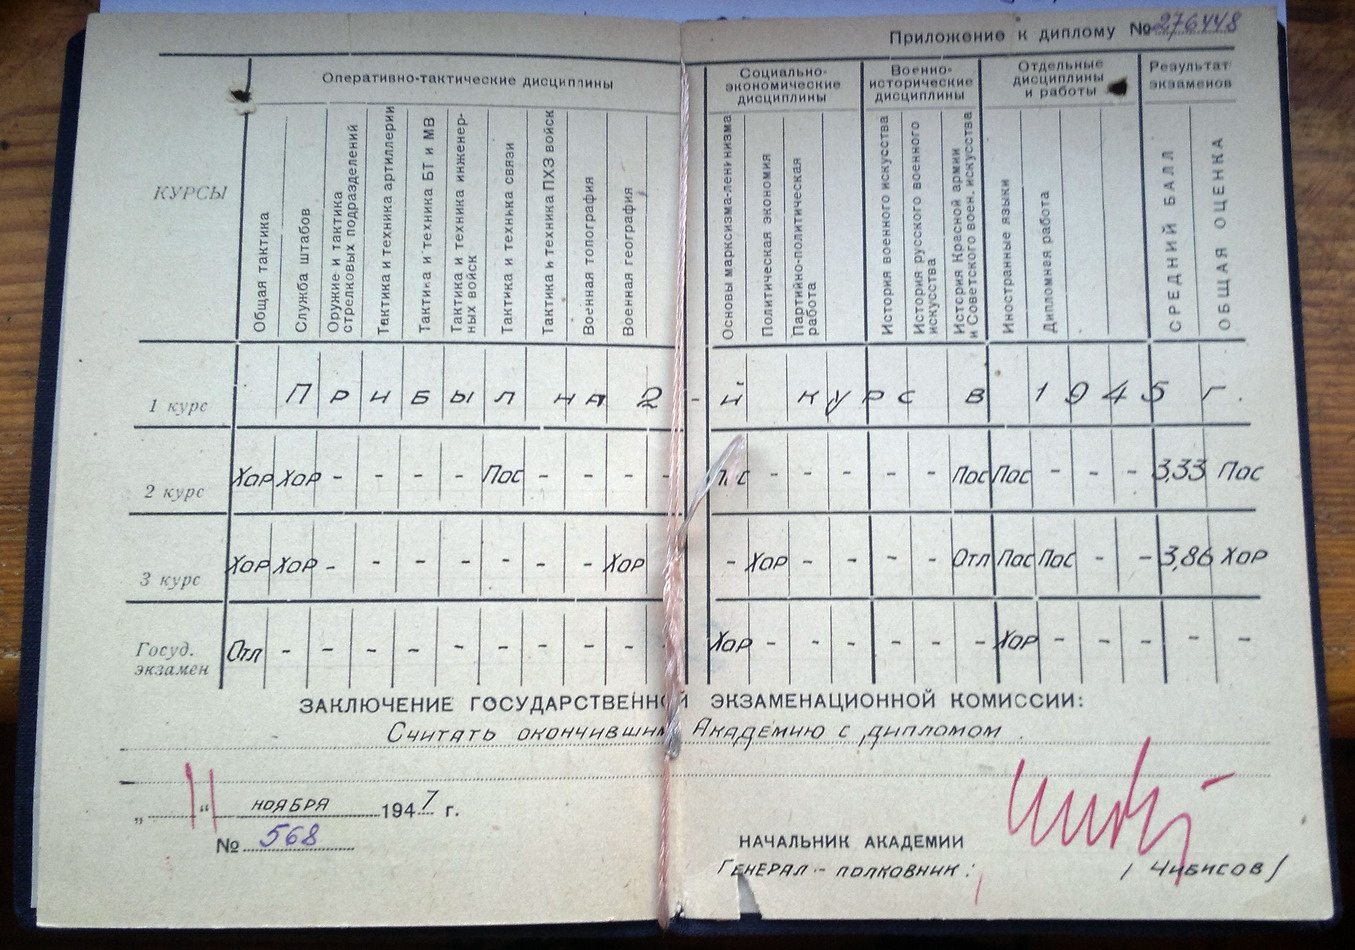 Приложение к диплому № 276448
КУРСЫ
Оперативно-тактические дисциплины
Социально-экономические дисциплины
Военно-исторические дисциплины
Отдельные дисциплины и работы
Результат экзаменов
Общая тактика
Служба штабов
Оружие и тактика стрелковых подразделений
Тактика и техника артиллерии
Тактика и техника БТ и МВ
Тактика и техника инженерных войск
Тактика и техника связи
Тактика и техника ПХЗ войск
Военная топография
Военная география
Основы марксизма-ленинизма
Политическая экономия
Партийно-политическая работа
История военного искусства
История русского военного искусства
История Красной армии и Советского воен. искусства
Иностранные языки
Дипломная работа
СРЕДНИЙ БАЛЛ
ОБЩАЯ ОЦЕНКА
1 курс Прибыл на 2-й курс в 1945 г.
2 курс Хор Хор - - - - Пос - - - - Пос - - - - - Пос Пос - - - 3,33 Пос
3 курс Хор Хор - - - - - - - Хор - Хор - - - - Отл Пос Пос - - 3,86 Хор
Госуд. экзамен Отл - - - - - - - - - - Хор - - - - - - Хор - - - - -
ЗАКЛЮЧЕНИЕ ГОСУДАРСТВЕННОЙ ЭКЗАМЕНАЦИОННОЙ КОМИССИИ:
Считать окончившим Академию с дипломом
„11“ ноября 1947 г.
№ 568
НАЧАЛЬНИК АКАДЕМИИ
Генерал-полковник: / Чибисов /